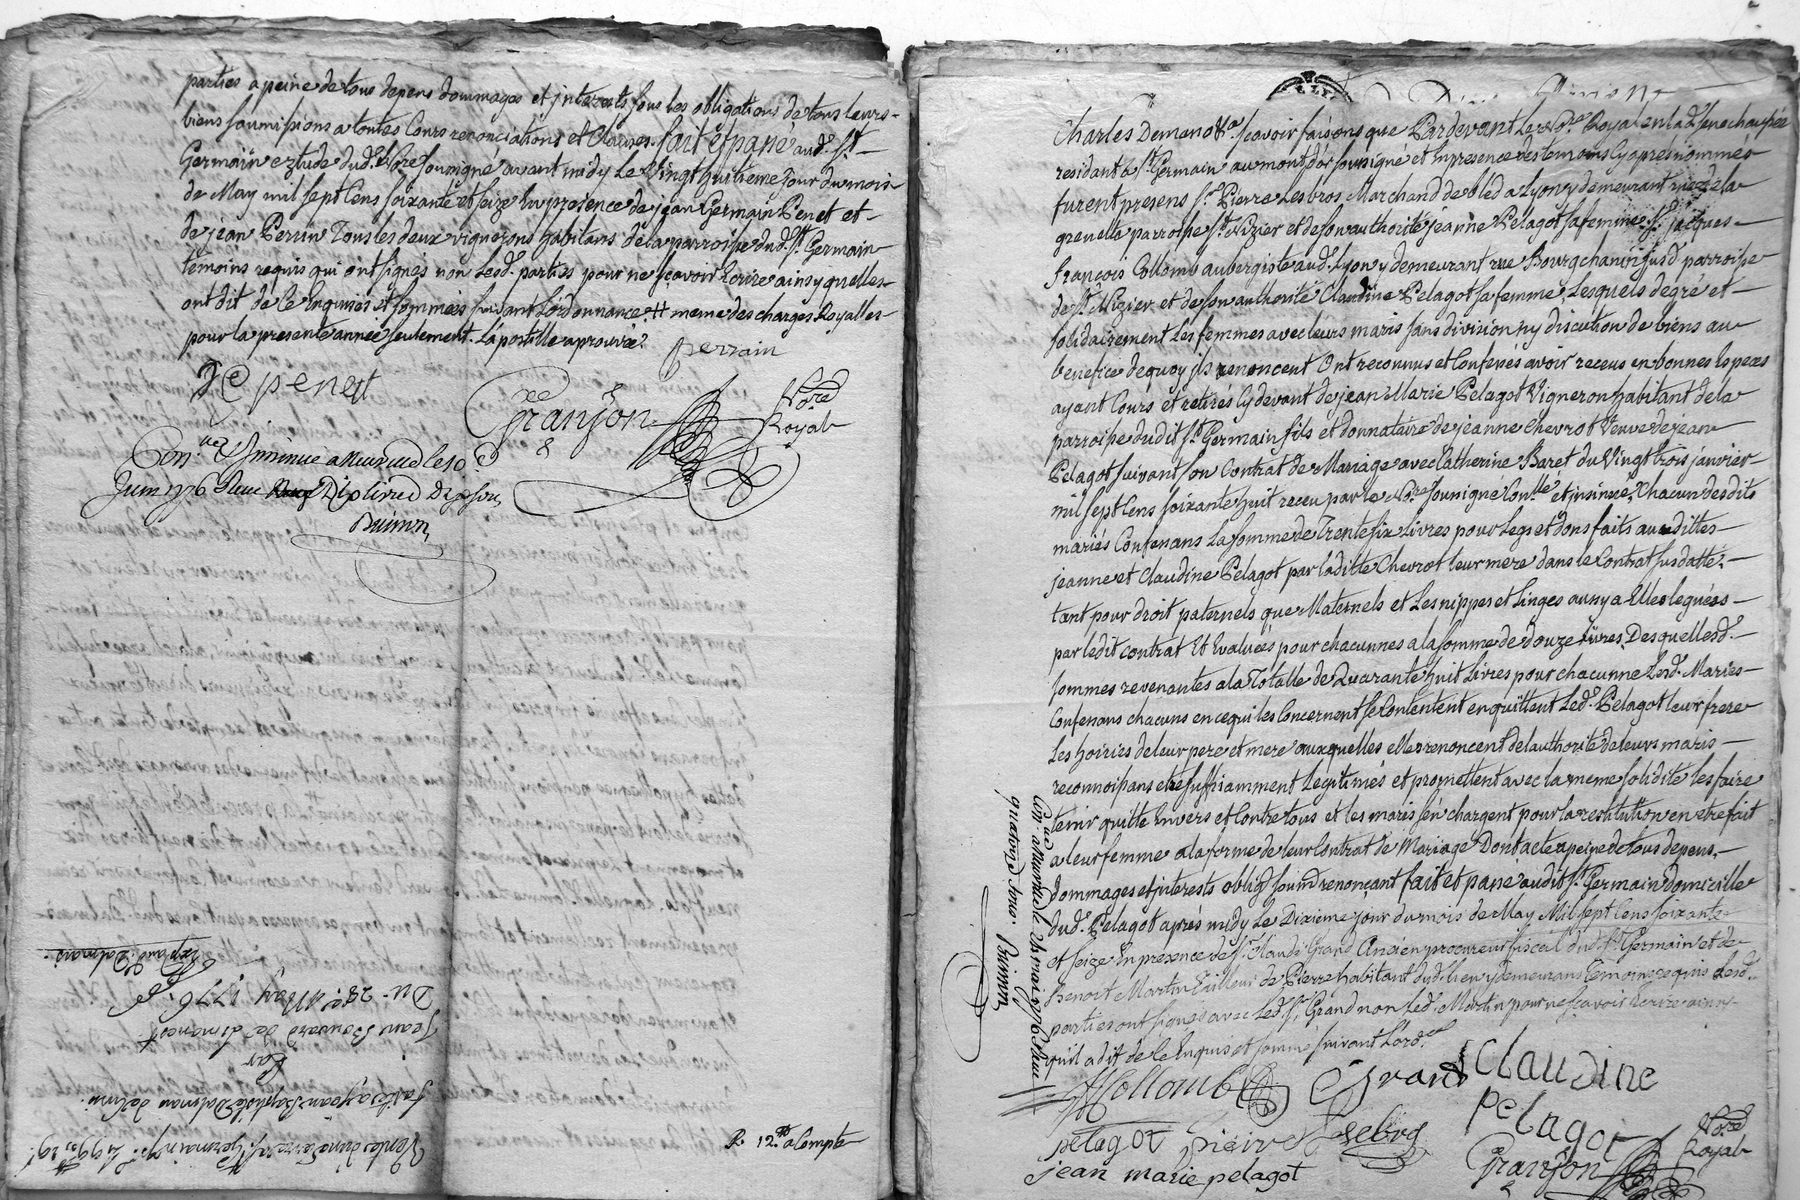 parties a peine de tous depens dommages et jnterests sous les obligations de tous leurs
biens soumissions a toutes Cours renonciations et Clauses. fait et passé aud. St.
Germain eztude dud. Nore soussigné avant midy Le Vingt huitieme Jour du mois
de May mil sept Cens soixante et seize En presence de jean Germain Penet et
de jean Perrin Tous les deux vignerons habitans de la parroisse dud. St. Germain
temoins requis qui ont signés non Lesd. parties pour ne sçavoir Ecrire ainsy quelles
ont dit de ce Enquises et sommées suivant Lordonnance. # meme des charges Royalles
pour la presente année seulement. Lapostille aprouvée.
perrain
JG penet
Granjon
Nore
Royal
Con.lé & insinué a Neuville le 10
Juin 1776 Reçu Dix livres Dix sous
Buimon
R. 12.tt a Compte
Vente d'une terre a St. Germain
faite a Jean Baptiste Dalmais de Curis
Par
Jean Bouvard de Limonest
Du. 28.e May 1776.
Exp. aud. Dalmais
Charles Demeno &a. sçavoir faisons que Pardevant Le No.re Royal en la d. senechaussée
residant a St. Germain au mont d'or soussigné et En presence des temoins Cy apres nommés
furent presens Sr. Pierre Lesbros Marchand de bled a Lyon y demeurant rue de la
grenette parroisse St. Nizier et de son authorité jeanne Pelagot sa femme, Sr. jacques
françois Collomb aubergiste aud. Lyon y demeurant rue Bourgchanin susd. parroisse
de St. Nizier et de son authorité Claudine Pelagot sa femme, Lesquels de gré et
solidairement Les femmes avec leurs maris sans division ny discution de biens au
benefice de quoy jls renoncent Ont reconnus et Confessés avoir receus en bonnes Especes
ayant Cours et retirés Cy devant de jean Marie Pelagot Vigneron habitant de la
parroisse dudit St. Germain fils et donnataire de jeanne Chevrot Veuve de jean
Pelagot suivant son Contrat de Mariage avec Catherine Baret du Vingt trois janvier
mil sept Cens soixante huit receu par le No.re soussigné Con.llé et insinué, Chacun desdits
mariés Confessans La somme de Trente six Livres pour Legs et dons faits auxdittes
jeanne et Claudine Pelagot par laditte Chevrot leur mere dans le Contrat susdatté,
tant pour droit paternels que Maternels et Les nippes et Linges aussy a Elles legués
par ledit contrat Et Evaluées pour chacunnes a la somme de douze Livres, Desquelles d.
sommes revenantes a la Totalle de Quarante huit Livres pour chacunne Lesd. Mariés
Confessans chacuns en ce qui les Concernent se Contentent en quittent Led. Pelagot leur frere
Les hoiries de leur pere et mere auxquelles elles renoncent de lauthorité de leurs maris
reconnoissans etre suffisamment Legitimés et promettent avec la meme solidité les faire
tenir quitte Envers et Contre tous et les mariés sen chargent pour la restitution en etre fait
a leur femme a la forme de leur Contrat de Mariage Dont acte a peine de tous depens,
dommages et jnterests oblig.s soum.s renonçant fait et passé audit St. Germain domicille
dud. Pelagot après midy Le Dixieme jour du mois de May Mil sept Cens soixante
et seize En presence de Sr. Claude Grand Ancien procureur fiscal dud. St. Germain et de
Benoit Martin Tailleur de Pierre habitant dud. lieu y demeurans temoins requis Lesd.
parties ont signés avec Led. Sr. Grand non Led. Martin pour ne sçavoir Ecrire ainsy
qu'il a dit de ce Enquis et sommé suivant L'ord.ce
Con.lé a Neuville le 24 mai 1776 Reçu
quatorze sous. Buimon
JfCollomb
CGrand
Claudine
pelagot
pelagot
pieire lesbros
jean marie pelagot
Granjon
Nore
Royal